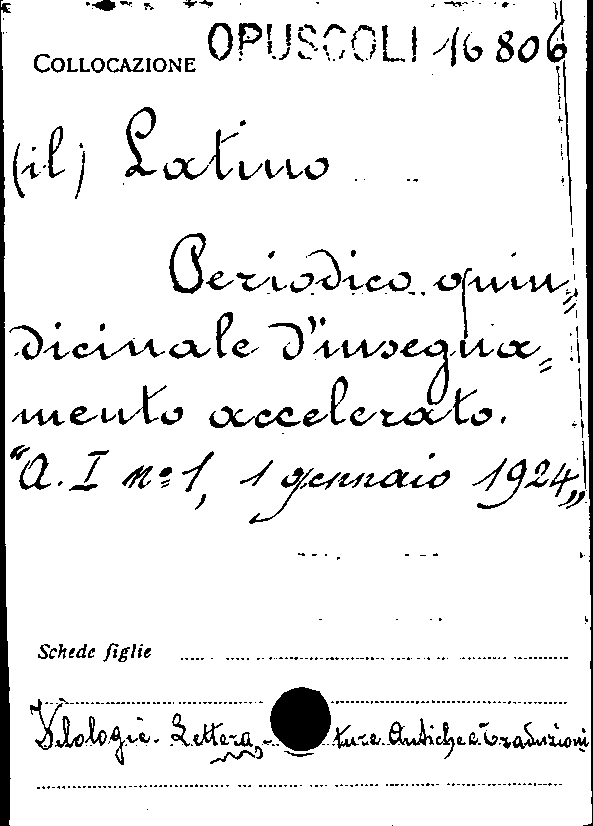 COLLOCAZIONE OPUSCOLI 16806
(il) Latino
Periodico quin=
dicinale d'insegna=
mento accelerato.
"A. I nº 1, 1 gennaio 1924"
Schede figlie
Filologie. Lettera- ture Antiche e Traduzioni